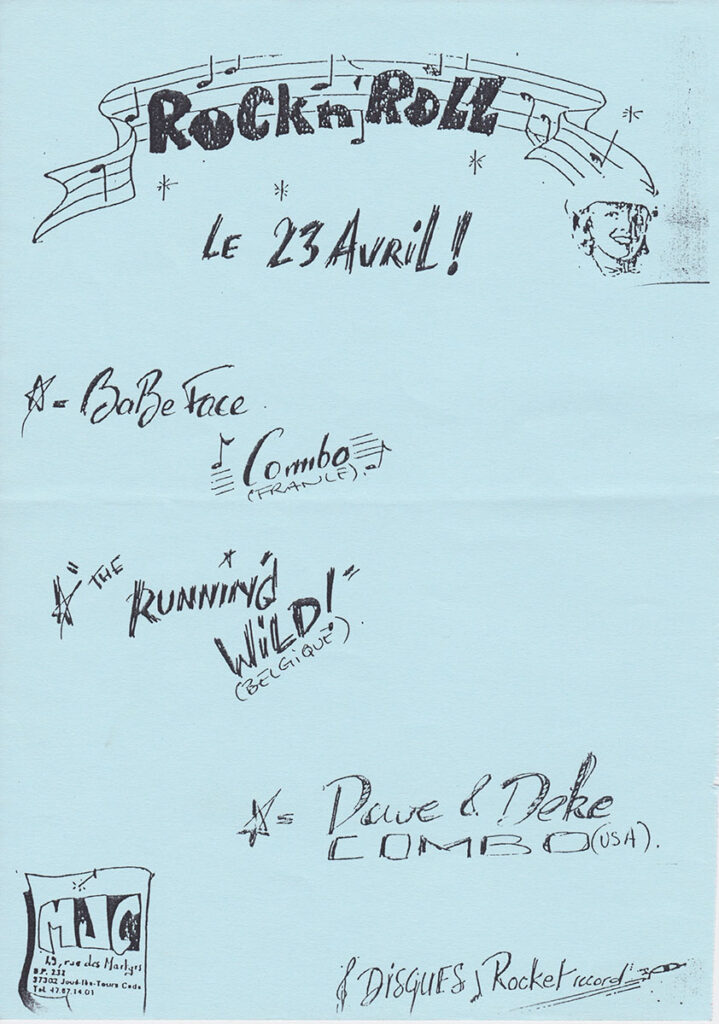 Rock n' Roll
LE 23 AVRIL!
= BaBe Face
Combo
(FRANCE).
"THE RUNNING
WILD!"
(BELGIQUE).
= Dave & Deke
COMBO (USA).
MJC
49, rue des Martyrs
B.P. 232
37302 Joué-lès-Tours Cedx
Tél. 47.67.14.01
DISQUES Rocket record